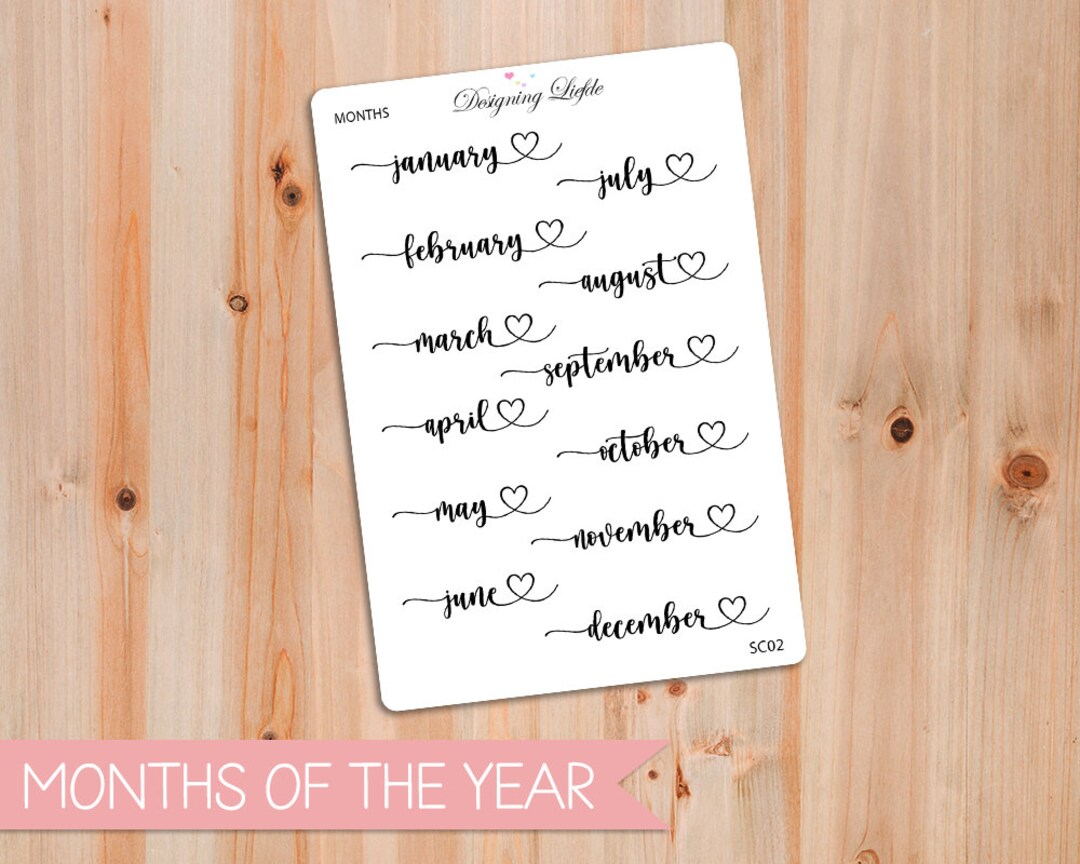 MONTHS
Designing Liefde
january
july
february
august
march
september
april
october
may
november
june
december
SC02
MONTHS OF THE YEAR